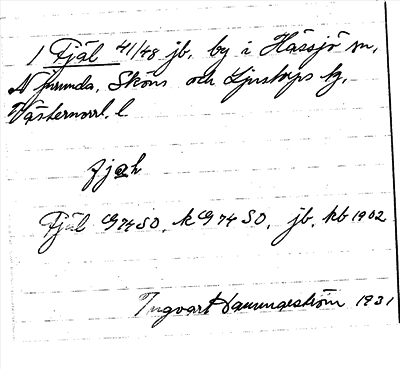 1 Fjäl 41/48 jb. by i Hässjö sn,
Njurunda, Sköns och Ljustorps tg,
Västernorrl. l.
fjäh
Fjäl G74SO, k G74 SO, jb. kb 1902
Ingvar Hammarström 1931